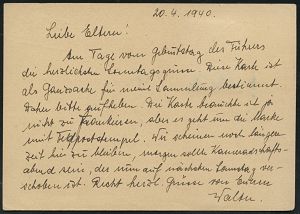 20.4.1940.
Liebe Eltern!
Am Tage vom Geburtstag des Führers
die herzlichsten Sonntagsgrüsse. Diese Karte ist
als Ganzsache für meine Sammlung bestimmt.
Daher bitte aufheben. Die Karte brauchte ist ja
nicht zu frankieren, aber es geht um die Marke
mit Feldpoststempel. Wir scheinen noch längere
Zeit hier zu bleiben, morgen sollte Kameradschafts-
abend sein, der nun auf nächsten Samstag ver-
schoben ist. Recht herzl. Grüsse von Eurem
Walter.